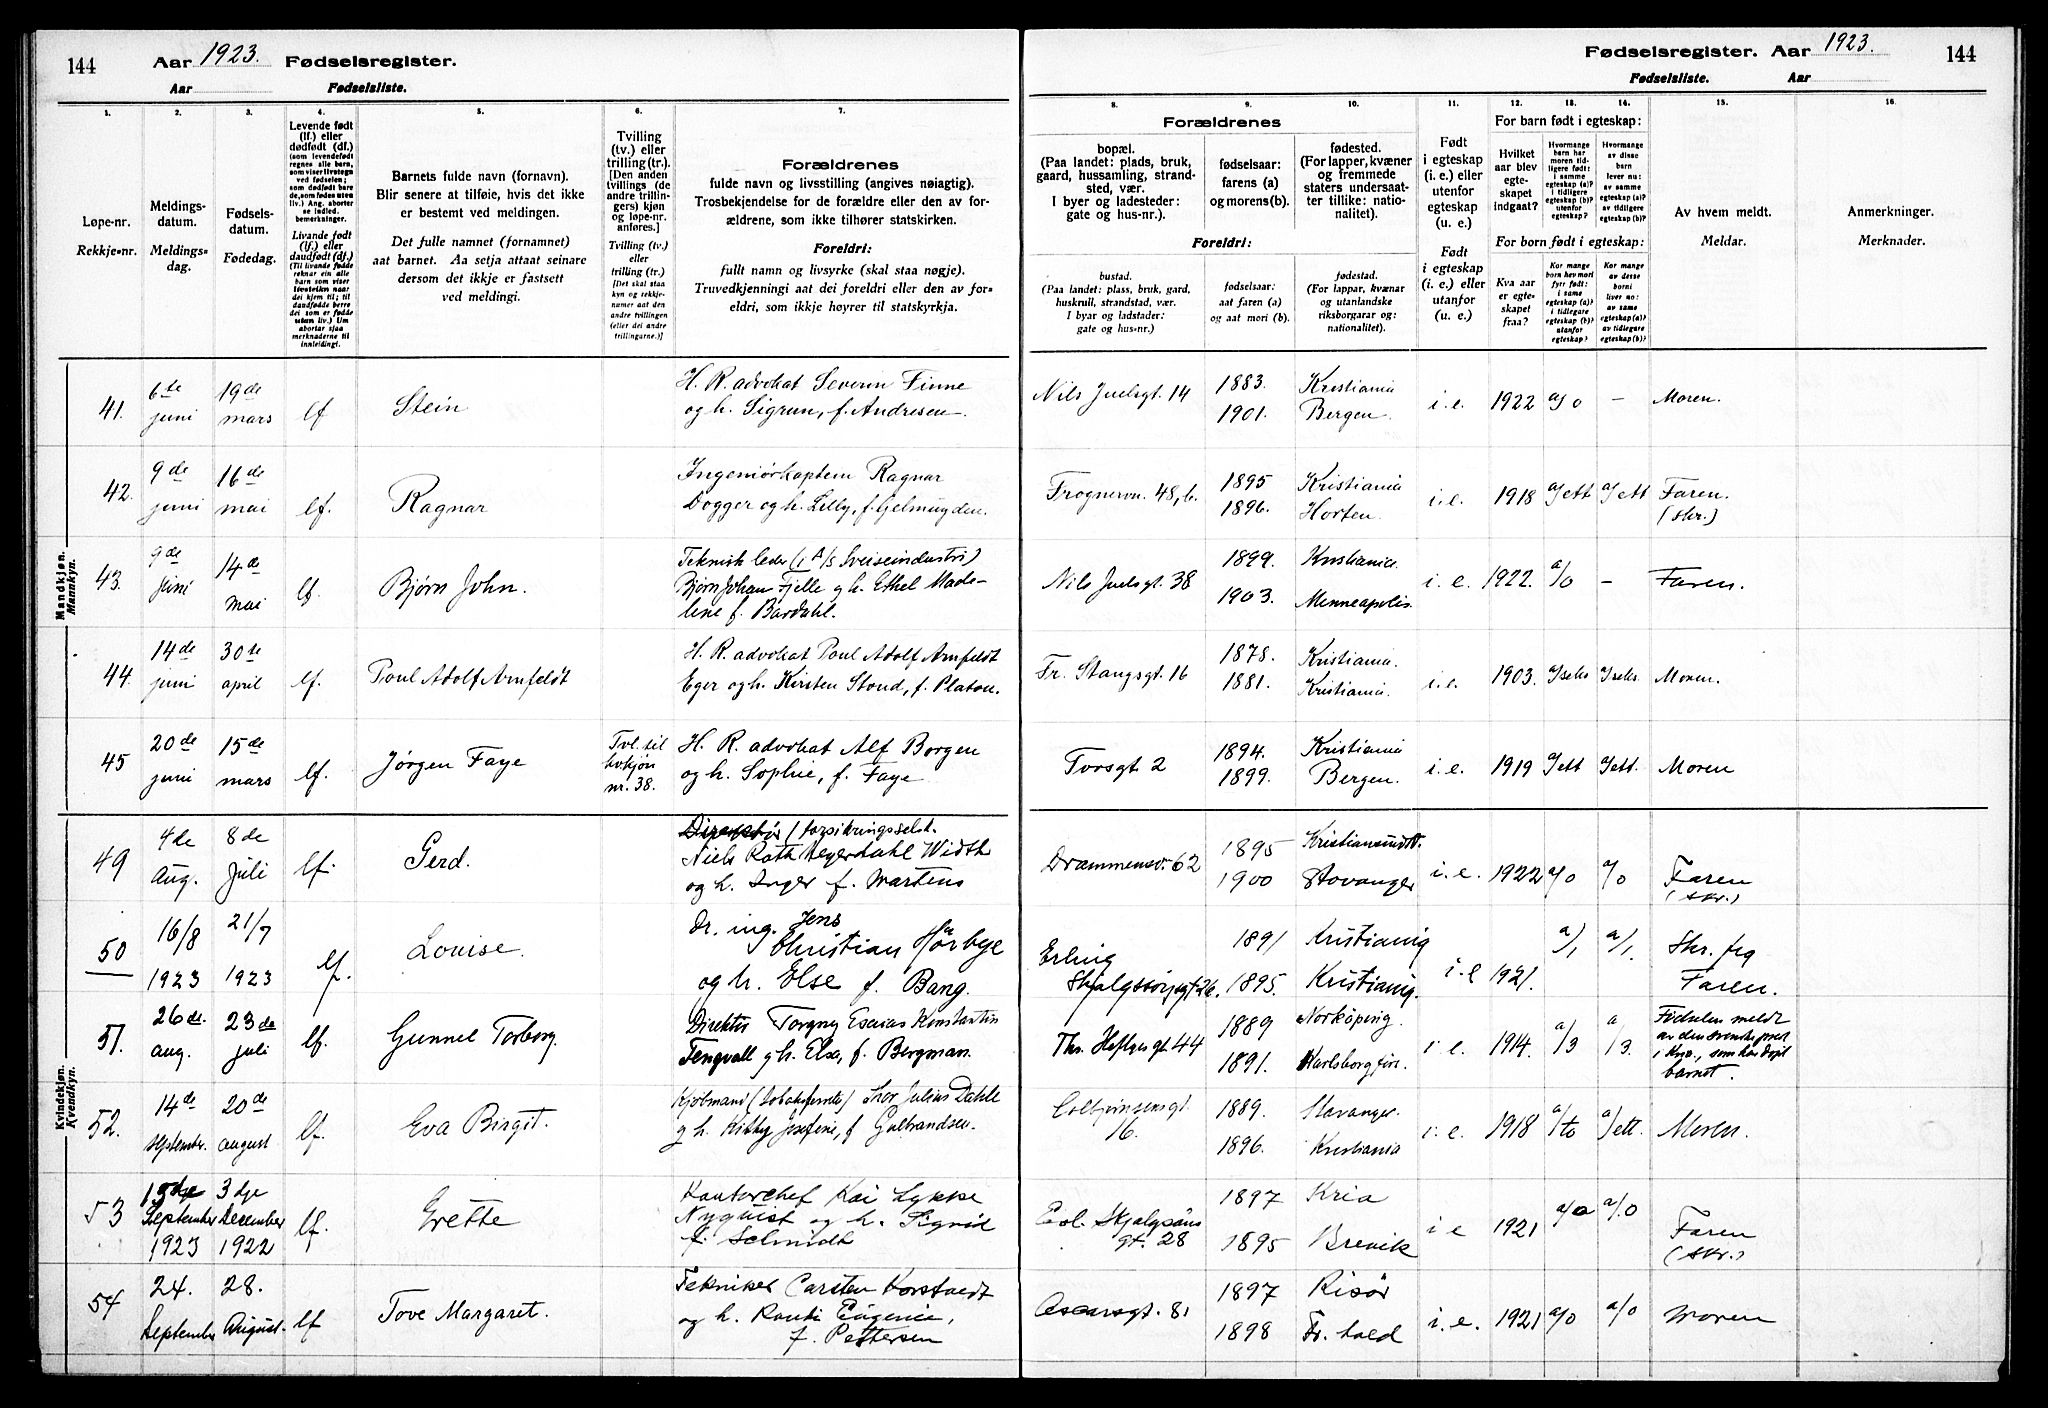 144
Aar 1923. Fødselsregister.
Aar Fødselsliste.
Fødselsregister. Aar 1923.
Fødselsliste. Aar
144
1.
Løpe-nr.
Rekkje-nr.
2.
Meldings-
datum.
Meldings-
dag.
3.
Fødsels-
datum.
Fødedag.
4.
Levende født
(lf.) eller
dødfødt (df.)
Livande født
(lf.) eller
daudfødt (df.)
5.
Barnets fulde navn (fornavn).
Blir senere at tilføie, hvis det ikke
er bestemt ved meldingen.
Det fulle namnet (fornamnet)
aat barnet. Aa setja attaat seinare
dersom det ikkje er fastsett
ved meldingi.
6.
Tvilling
(tv.) eller
trilling (tr.).
[Den anden
tvillings (de
andre trillin-
gers) kjøn
og løpe-nr.
anføres.]
Tvilling (tv.)
eller
trilling (tr.)
[Det skal staa
kyn og rekkje-
numer aat den
andre tvillingen
(eller dei andre
trillingarne.)]
7.
Forældrenes
fulde navn og livsstilling (angives nøiagtig).
Trosbekjendelse for de forældre eller den av for-
ældrene, som ikke tilhører statskirken.
Foreldri:
fullt namn og livsyrke (skal staa nøgje).
Truvedkjenningi aat dei foreldri eller den av for-
eldri, som ikkje høyrer til statskyrkja.
Forældrenes
8.
bopæl.
(Paa landet: plads, bruk,
gaard, hussamling, strand-
sted, vær.
I byer og ladesteder:
gate og hus-nr.).
9.
fødselsaar:
farens (a)
og morens (b).
10.
fødested.
(For lapper, kvæner
og fremmede
staters undersaat-
ter tillike: natio-
nalitet).
Foreldri:
bustad.
(Paa landet: plass, bruk, gard,
huskrull, strandstad, vær.
I byar og ladstader:
gate og hus-nr.)
fødselsaar:
aat faren (a)
og aat mori (b).
fødestad.
(For lappar, kvænar
og utanlandske
riksborgarar og:
nationalitet).
11.
Født
i egteskap
(i. e.) eller
utenfor
egteskap
(u. e.)
Født
i egteskap
(i. e.) eller
utanfor
(u. e.)
For barn født i egteskap:
12.
Hvilket
aar blev
egte-
skapet
indgaat?
13.
Hvormange
barn har
moren tid-
ligere født:
i samme
egteskap (a)?
i tidligere
egteskap (b)?
utenfor
egteskap?
14.
Hvormange
av disse
barn
lever nu:
av samme
egteskap (a)?
av tidligere
egteskap (b)?
For born født i egteskap:
Kva aar
er egte-
skapet
fraa?
15.
Av hvem meldt.
Meldar.
16.
Anmerkninger.
Merknader.
Mandkjøn.
Mannkyn.
41. 6te juni 19de mars lf Stein
H. R. advokat Severin Finne
og h. Sigrun, f. Andresen.
Nils Juelsgt. 14 1883. 1901. Kristiania Bergen. i. e. 1922 a/0 – Moren.
42. 9de juni 16de mai lf. Ragnar
Ingeniørkaptein Ragnar
Dogger og h. Lilly, f. Gjelmuyden.
Frognervn. 48, b. 1895 1896. Kristiania Horten. i. e. 1918 a/ett a/ett Faren. (skr.)
43. 9de juni 14de mai lf. Bjørn John.
Teknisk leder (i A/s Sveiseindustri)
Bjørn Johan Fjelle og h. Ethel Made-
lene f. Bardahl.
Nils Juelsgt. 38 1899. 1903. Kristiania. Minneapolis. i. e. 1922. a/0 – Faren.
44. 14de juni 30te april lf. Poul Adolf Arnfeldt
H. R. advokat Poul Adolf Arnfeldt
Eger og h. Kirsten Stoud, f. Platou.
Fr. Stangsgt. 16 1878. 1881. Kristiania. Kristiania. i. e. 1903. Moren.
45 20de juni 15de mars lf. Jørgen Faye
Tvl. til kvkjøn nr. 38.
H. R. advokat Alf Borgen
og h. Sophie, f. Faye.
Torsgt. 2 1894. 1899. Kristiania Bergen. i. e. 1919 1ett 1ett. Moren
Kvindekjøn.
Kvendkyn.
49 4de Aug. 8de Juli lf. Gerd.
Direktør i forsikringsselsk.
Niels Rath Heyerdahl Width
og h. Inger f. Martens
Drammensv. 62 1895 1900 Kristiansund N. Stavanger i. e. 1922 a/0 a/0 Faren (skr.)
50 16/8 1923 21/7 1923 lf. Louise.
Dr. ing. Jens
Christian Hørbye
og h. Else f. Bang.
Erling Skjalgssønsgt 26. 1891 1895. Kristiania Kristiania. i. e 1921. a/1 a/1. Skr. fra Faren.
51. 26de. aug. 23de juli lf. Gunnel Torborg.
Direktør Torgny Esaias Konstantin
Tengvall og h. Elsa, f. Bergman.
Th. Heftyes gt. 44 1889 1891. Norköping. Karlsborg i. e. 1914. a/3 a/3. Fødselen meldt
av den svenske prest
i Kra., som har døpt
barnet.
52. 14de september. 20de august lf. Eva Birgit.
Kjøbmand Thor Julius Dahle
og h. Kitty Josefine, f. Gulbrandsen.
Colbjørnsensgt. 16. 1889. 1896. Stavanger. Kristiania i. e. 1918 a/to a/ett. Moren.
53 15dje September 1923 3dje December 1922 lf. Grette
Kontorchef Kai Lykke
Nyquist og h. Sigrid
f. Schmidt
Erl. Skjalgsøns gt. 28 1897 1895 Kria Brevik i e 1921 a/0 a/0 Faren (skr.)
54 24. September 28. August. lf Tove Margaret.
Tekniker Carsten Korstvedt
og h. Eugenie,
f. Pettersen
Oscarsgt. 81 1897 1898 Risør Fr. hald i. e. 1921 a/0 a/0 Moren